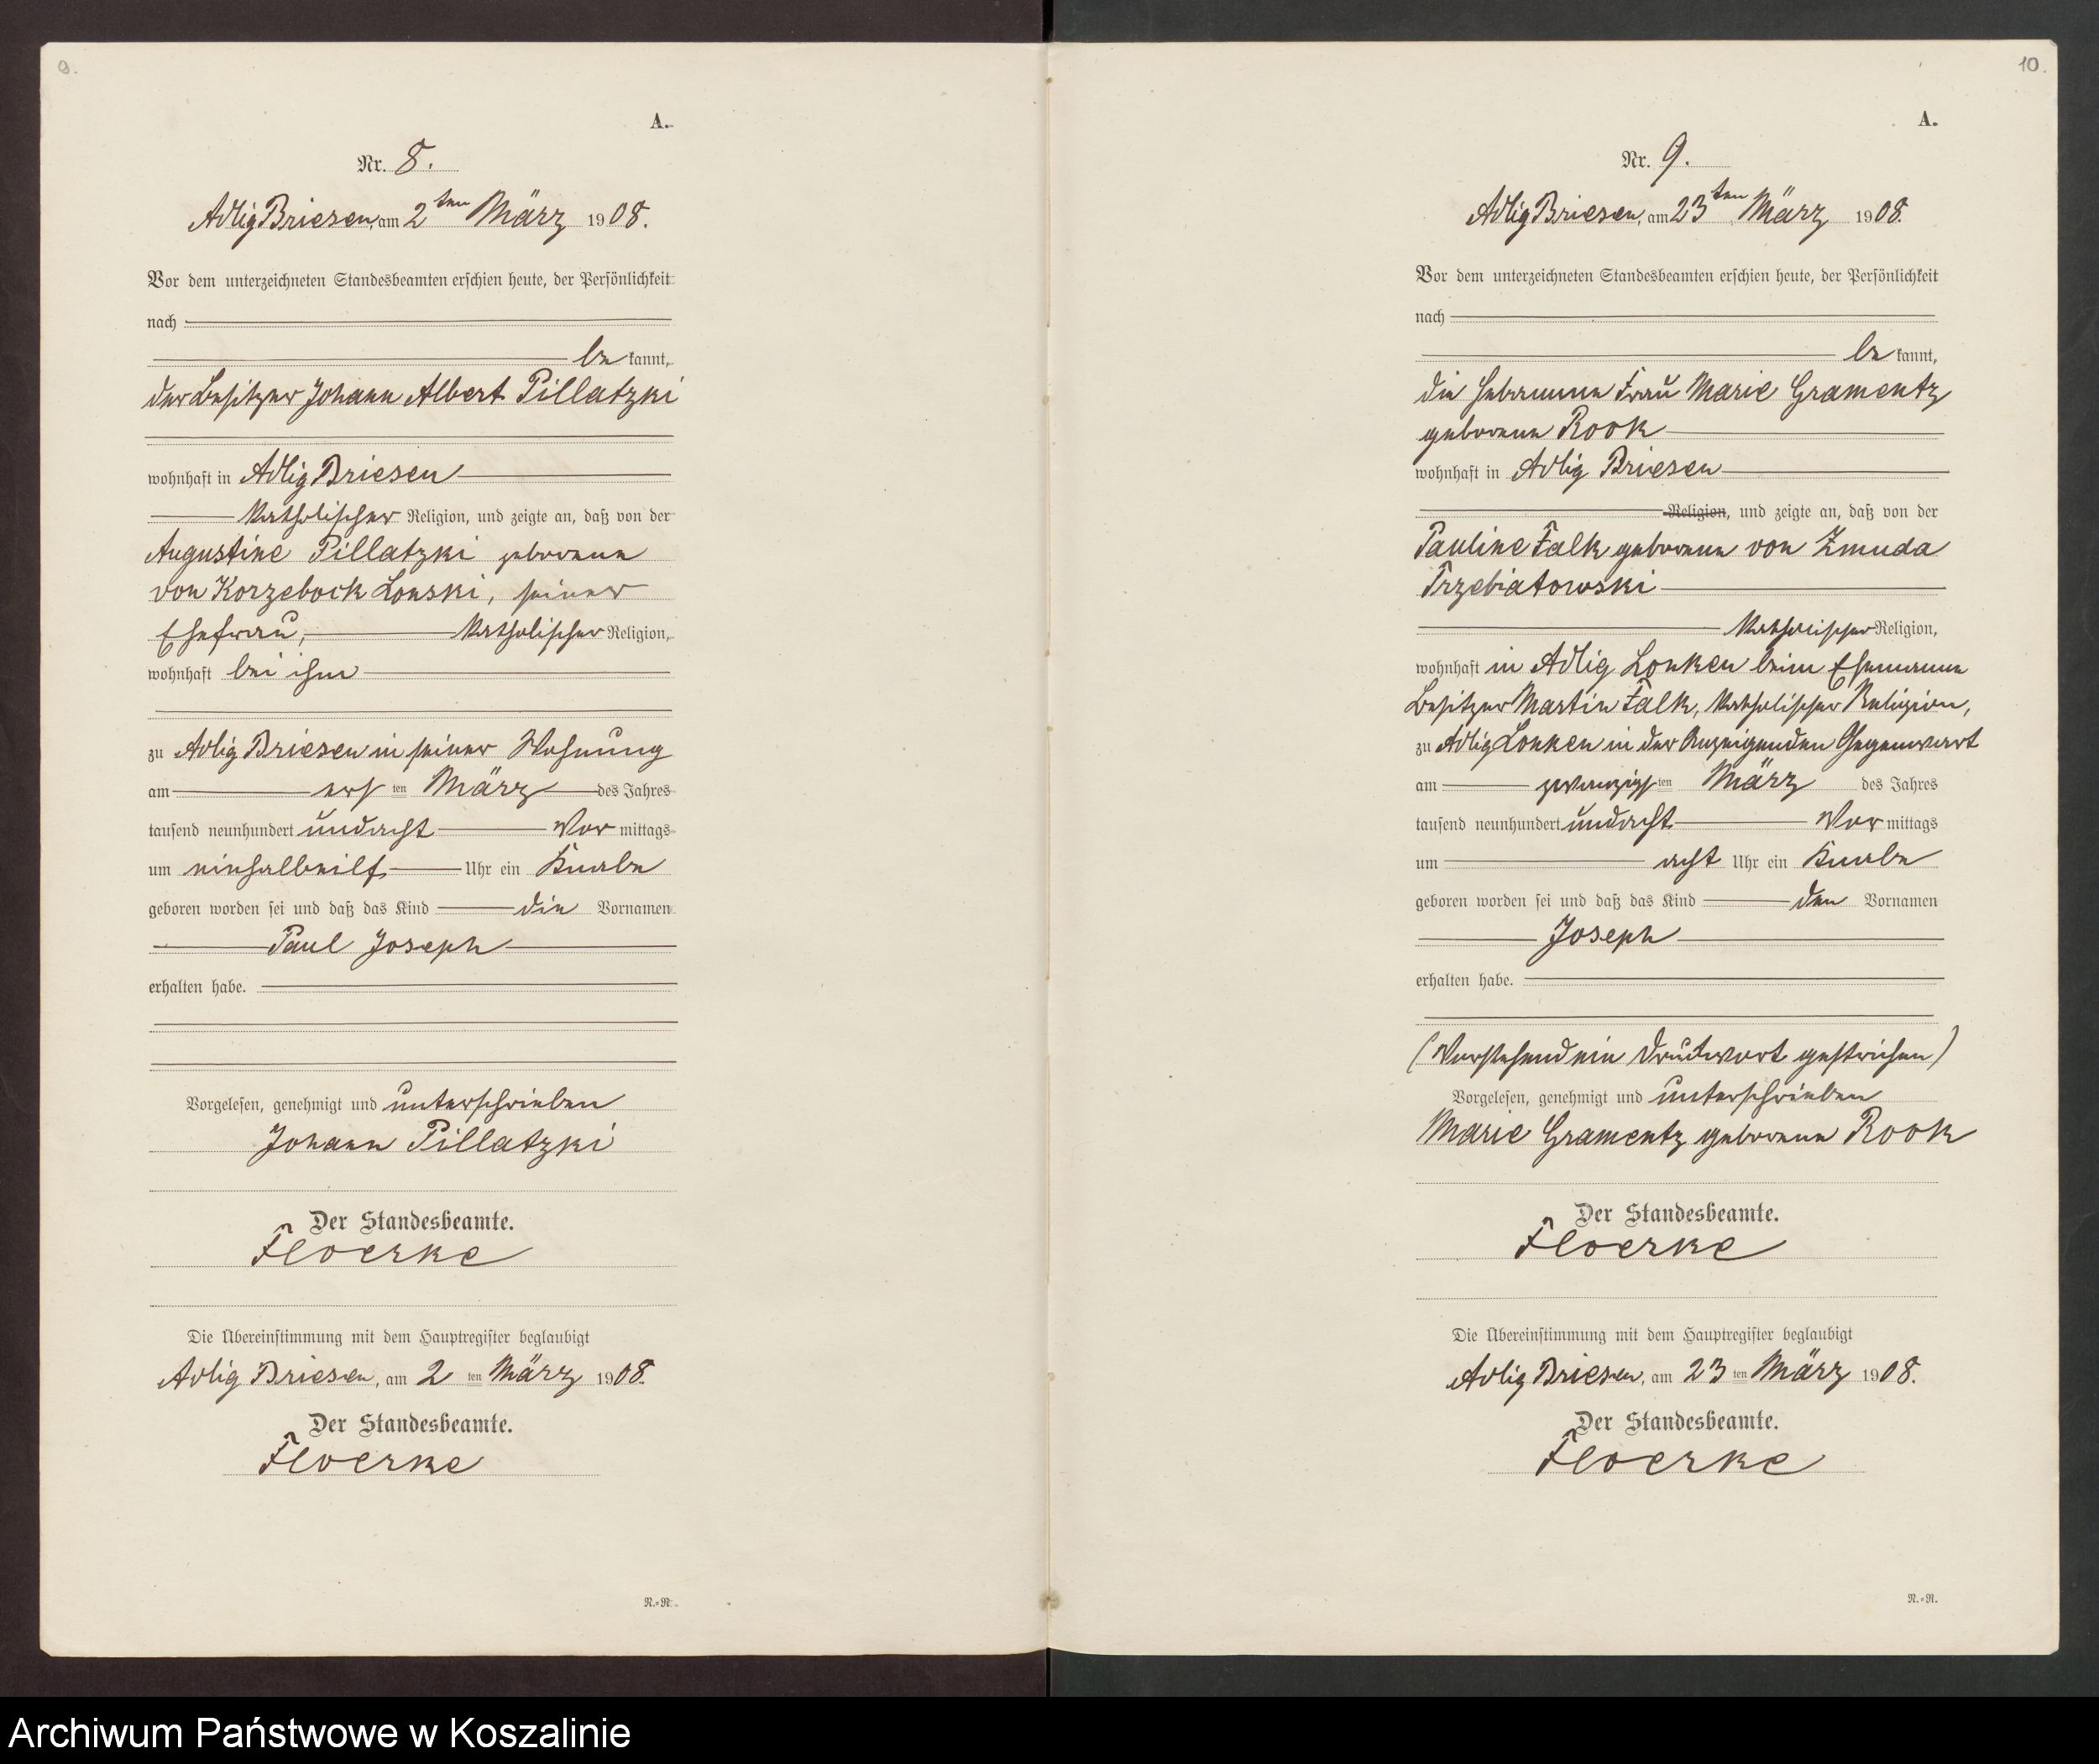 9.
A.
Nr. 8.
Adlig Briesen, am 2ten März 1908.
Vor dem unterzeichneten Standesbeamten erschien heute, der Persönlichkeit
nach
be kannt,
der Besitzer Johann Albert Pillatzki
wohnhaft in Adlig Briesen
katholischer Religion, und zeigte an, daß von der
Augustine Pillatzki geborene
von Korzebock Lonski, seiner
Ehefrau, katholischer Religion,
wohnhaft bei ihm
zu Adlig Briesen in seiner Wohnung
am ersten März des Jahres
tausend neunhundert undacht Vormittags
um einhalbeilf Uhr ein Knabe
geboren worden sei und daß das Kind die Vornamen
Paul Joseph
erhalten habe.
Vorgelesen, genehmigt und unterschrieben
Johann Pillatzki
Der Standesbeamte.
Floerke
Die Übereinstimmung mit dem Hauptregister beglaubigt
Adlig Briesen, am 2ten März 1908.
Der Standesbeamte.
Floerke
N.=N.
10.
A.
Nr. 9.
Adlig Briesen, am 23ten März 1908.
Vor dem unterzeichneten Standesbeamten erschien heute, der Persönlichkeit
nach
be kannt,
die Hebamme Frau Marie Gramentz
geborene Rook
wohnhaft in Adlig Briesen
Religion, und zeigte an, daß von der
Pauline Falk geborene von Zmuda
Trzebiatowski
katholischer Religion,
wohnhaft in Adlig Lonken beim Ehemanne
Besitzer Martin Falk, katholischer Religion,
zu Adlig Lonken in der Anzeigenden Gegenwart
am zwanzigsten März des Jahres
tausend neunhundert undacht Vormittags
um acht Uhr ein Knabe
geboren worden sei und daß das Kind den Vornamen
Joseph
erhalten habe.
(Vorstehend ein Druckwort gestrichen)
Vorgelesen, genehmigt und unterschrieben
Marie Gramentz geborene Rook
Der Standesbeamte.
Floerke
Die Übereinstimmung mit dem Hauptregister beglaubigt
Adlig Briesen, am 23ten März 1908.
Der Standesbeamte.
Floerke
N.=N.
Archiwum Państwowe w Koszalinie